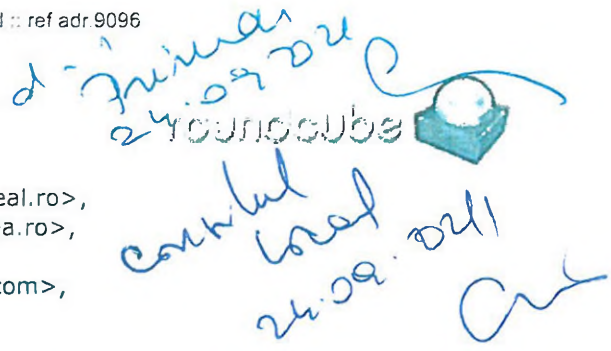 d :: ref adr.9096
d-lui Primar
24.09.2021
roundcube
eal.ro>,
a.ro>,
consiliul
local
com>,
24.09.2021